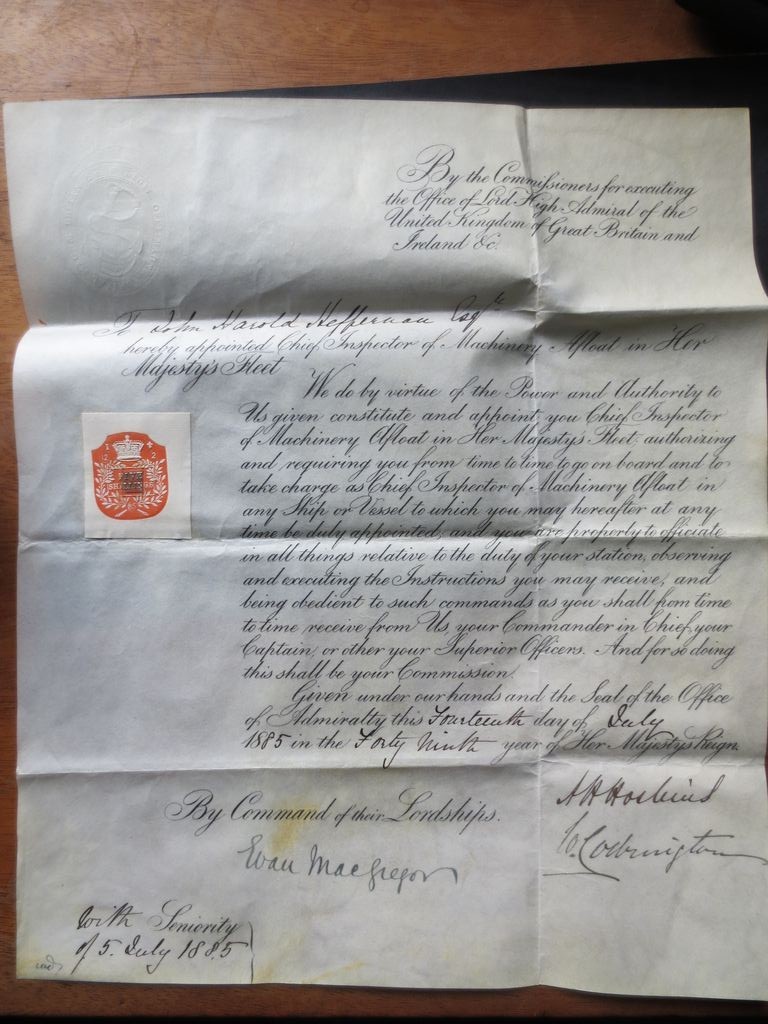 By the Commissioners for executing
the Office of Lord High Admiral of the
United Kingdom of Great Britain and
Ireland &c.
To John Harold Heffernan Esqre
hereby appointed Chief Inspector of Machinery Afloat in Her
Majesty's Fleet
We do by virtue of the Power and Authority to
Us given constitute and appoint you Chief Inspector
of Machinery Afloat in Her Majesty's Fleet, authorizing
and requiring you from time to time to go on board and to
take charge as Chief Inspector of Machinery Afloat in
any Ship or Vessel to which you may hereafter at any
time be duly appointed, and you are properly to officiate
in all things relative to the duty of your station, observing
and executing the Instructions you may receive, and
being obedient to such commands as you shall from time
to time receive from Us, your Commander in Chief, your
Captain, or other your Superior Officers. And for so doing
this shall be your Commission.
Given under our hands and the Seal of the Office
of Admiralty this Fourteenth day of July
1885 in the Forty Ninth year of Her Majesty's Reign.
By Command of their Lordships.
A H Hoskins
W. Codrington
Evan MacGregor
With Seniority
of 5. July 1885